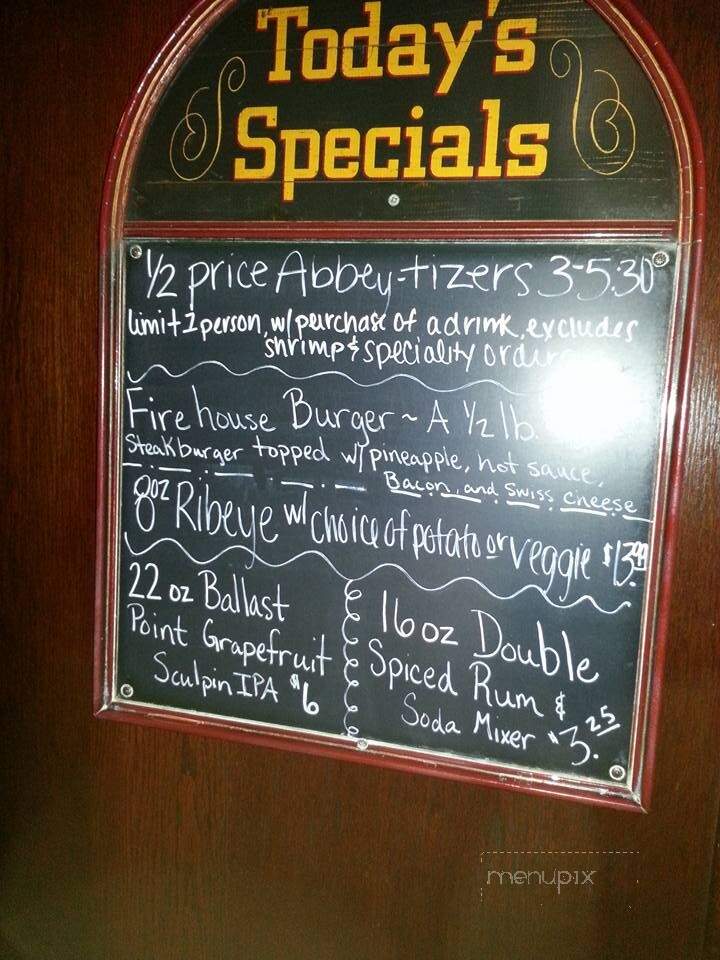 Today's
Specials
1/2 price Abbey-tizers 3-5:30
limit 1 person, w/ purchase of a drink, excludes
shrimp & speciality
Firehouse Burger ~ A 1/2 lb.
Steakburger topped w/ pineapple, hot sauce,
Bacon, and Swiss Cheese
8oz Ribeye w/ choice of potato or veggie $13.99
22 oz Ballast
Point Grapefruit
Sculpin IPA $6
16 oz Double
Spiced Rum &
Soda Mixer $3.25
menupix